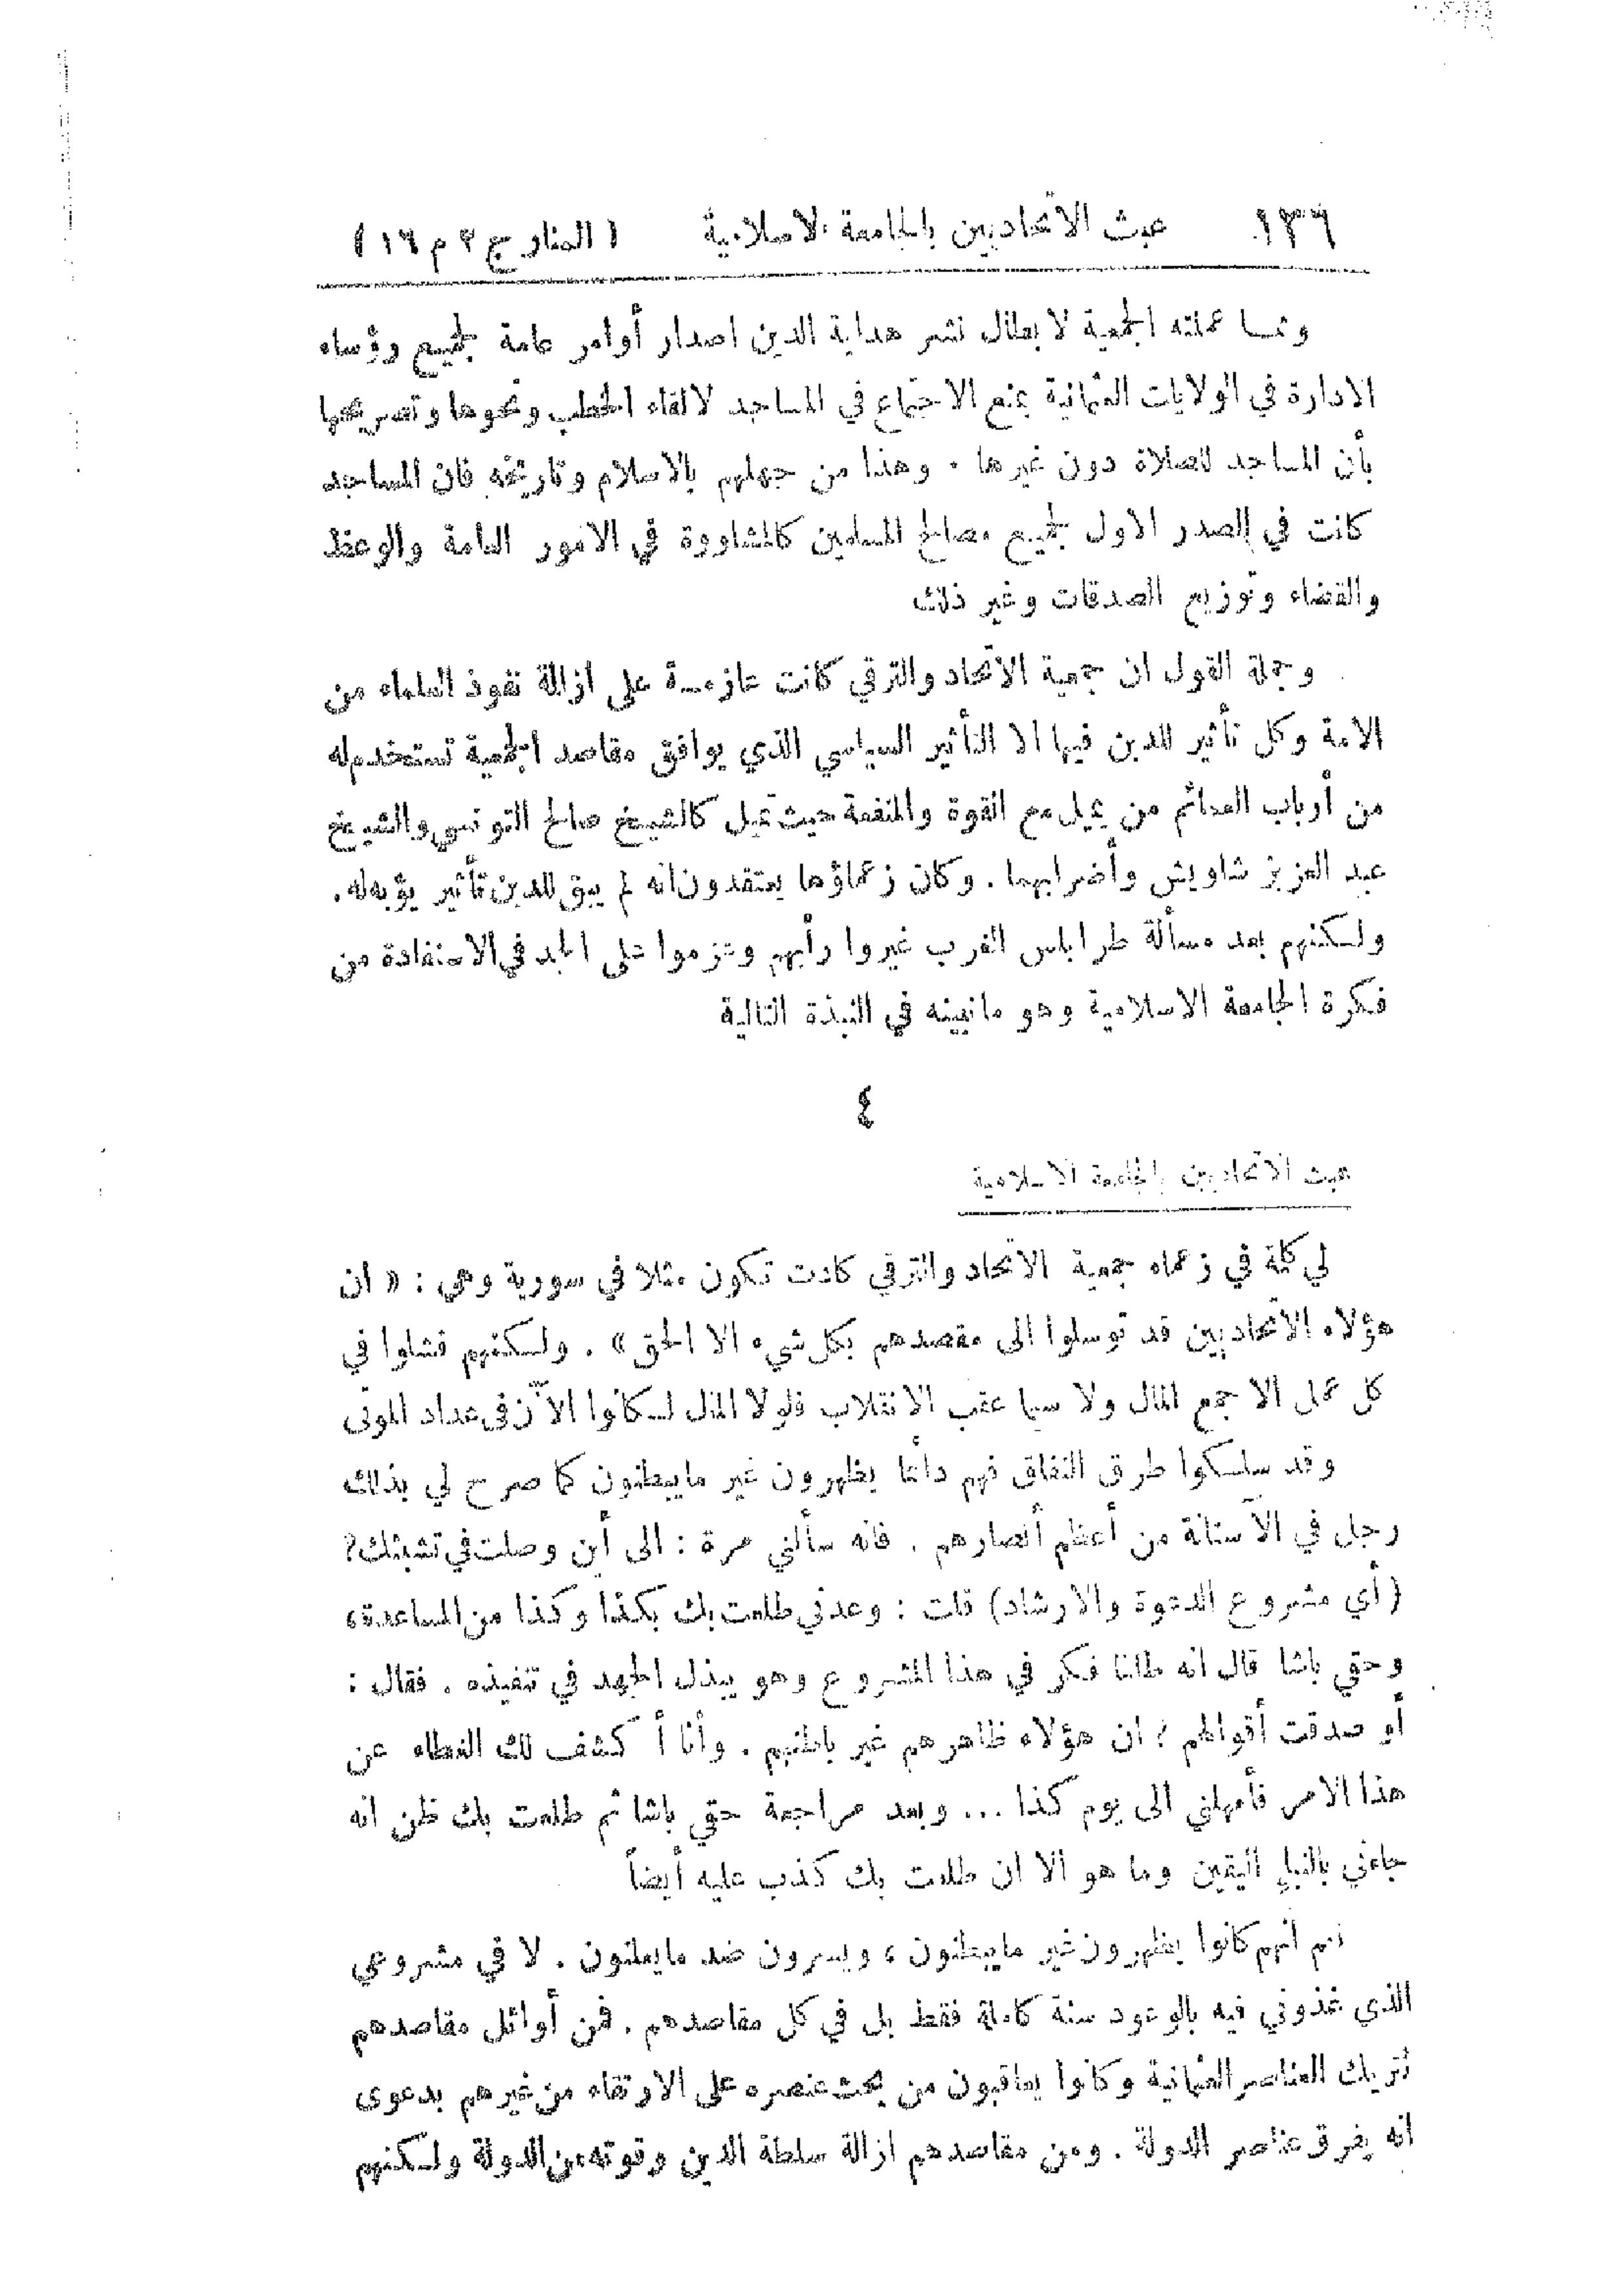 ١٣٦ عبث الاتحاديين بالجامعة الاسلامية (المنار ج ٢ م ١٦)
ومما عملته الجمعية لابطال نشر هداية الدين اصدار أوامر عامة لجميع رؤساء
الادارة في الولايات العثمانية بمنع الاجتماع في المساجد لالقاء الخطب ونحوها وتصريحها
بأن المساجد للصلاة دون غيرها . وهذا من جهلهم بالاسلام وتاريخه فان المساجد
كانت في الصدر الاول لجميع مصالح المسلمين كالمشاورة في الامور العامة والوعظ
والقضاء وتوزيع الصدقات وغير ذلك
وجملة القول ان جمعية الاتحاد والترقي كانت عازمة على ازالة نفوذ العلماء من
الامة وكل تأثير للدين فيها الا التأثير السياسي الذي يوافق مقاصد الجمعية تستخدم له
من أرباب العمائم من يميل مع القوة والمنفعة حيث تميل كالشيخ صالح التونسي والشيخ
عبد العزيز شاويش وأضرابهما . وكان زعماؤها يعتقدون انه لم يبق للدين تأثير يؤبه له .
ولكنهم بعد مسألة طرابلس الغرب غيروا رأيهم وعزموا على الجد في الاستفادة من
فكرة الجامعة الاسلامية وهو مانبينه في النبذة التالية
٤
عبث الاتحاديين بالجامعة الاسلامية
لي كلمة في زعماء جمعية الاتحاد والترقي كادت تكون مثلا في سورية وهي : « ان
هؤلاء الاتحاديين قد توسلوا الى مقصدهم بكل شيء الا الحق » . ولكنهم فشلوا في
كل عمل الا جمع المال ولا سيما عقب الانقلاب فلولا المال لكانوا الآن في عداد الموتى
وقد سلكوا طرق النفاق فهم دائما يظهرون غير مايبطنون كما صرح لي بذلك
رجل في الآستانة من أعظم أنصارهم . فانه سألني مرة : الى أين وصلت في تشبثك؟
(أي مشروع الدعوة والارشاد) قلت : وعدني طلعت بك بكذا وكذا من المساعدة،
وحقي باشا قال انه طالما فكر في هذا المشروع وهو يبذل الجهد في تنفيذه . فقال :
أو صدقت أقوالهم ؛ ان هؤلاء ظاهرهم غير باطنهم . وأنا أكشف لك الغطاء عن
هذا الامر فأمهلني الى يوم كذا ... وبعد مراجعة حقي باشا ثم طلعت بك ظن انه
جاءني بالنبإ اليقين وما هو الا ان طلعت بك كذب عليه أيضاً
نعم انهم كانوا يظهرون غير مايبطنون ، ويسرون ضد مايعلنون . لا في مشروعي
الذي غذوني فيه بالوعود سنة كاملة فقط بل في كل مقاصدهم . فمن أوائل مقاصدهم
تتريك العناصر العثمانية وكانوا يعاقبون من يحث عنصره على الارتقاء من غيرهم بدعوى
انه يفرق عناصر الدولة . ومن مقاصدهم ازالة سلطة الدين وقوته من الدولة ولكنهم